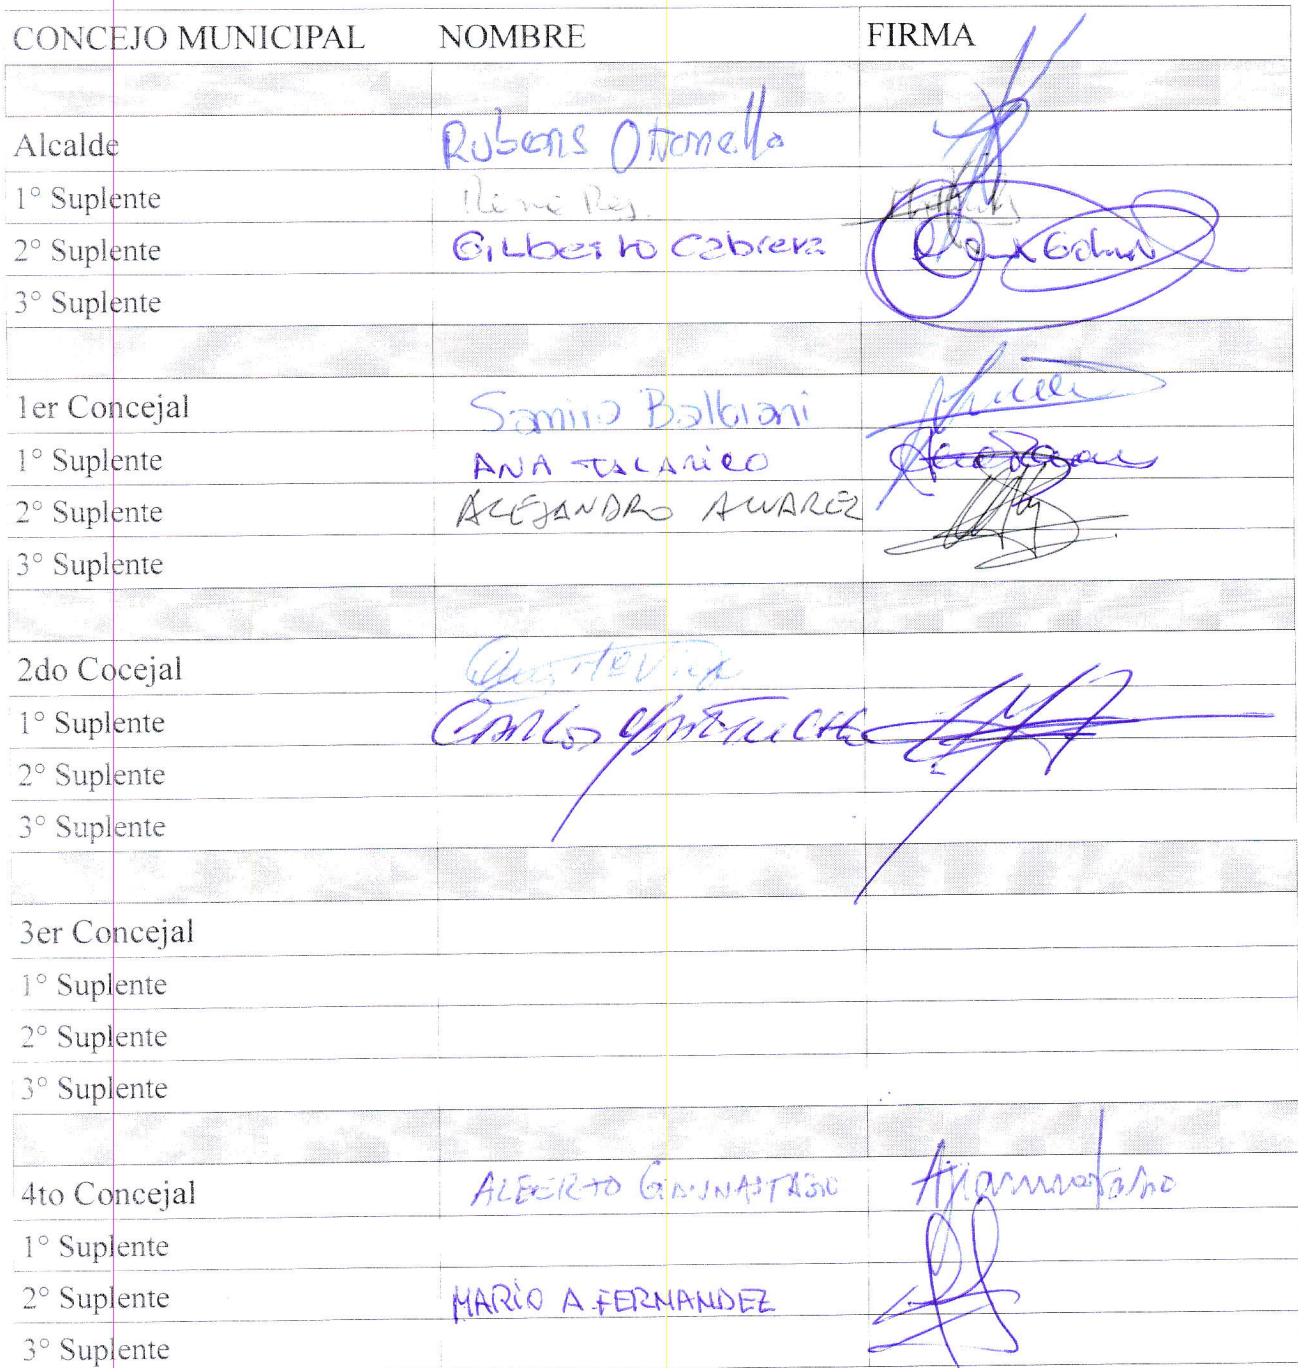 CONCEJO MUNICIPAL NOMBRE FIRMA
Alcalde Rubens Ottonello
1° Suplente René
2° Suplente GiLberto Cabrera
3° Suplente
1er Concejal Samira Balbiani
1° Suplente ANA TALARICO
2° Suplente ALEJANDRO ALVAREZ
3° Suplente
2do Cocejal
1° Suplente CARLOS
2° Suplente
3° Suplente
3er Concejal
1° Suplente
2° Suplente
3° Suplente
4to Concejal ALBERTO
1° Suplente
2° Suplente MARIO A FERNANDEZ
3° Suplente